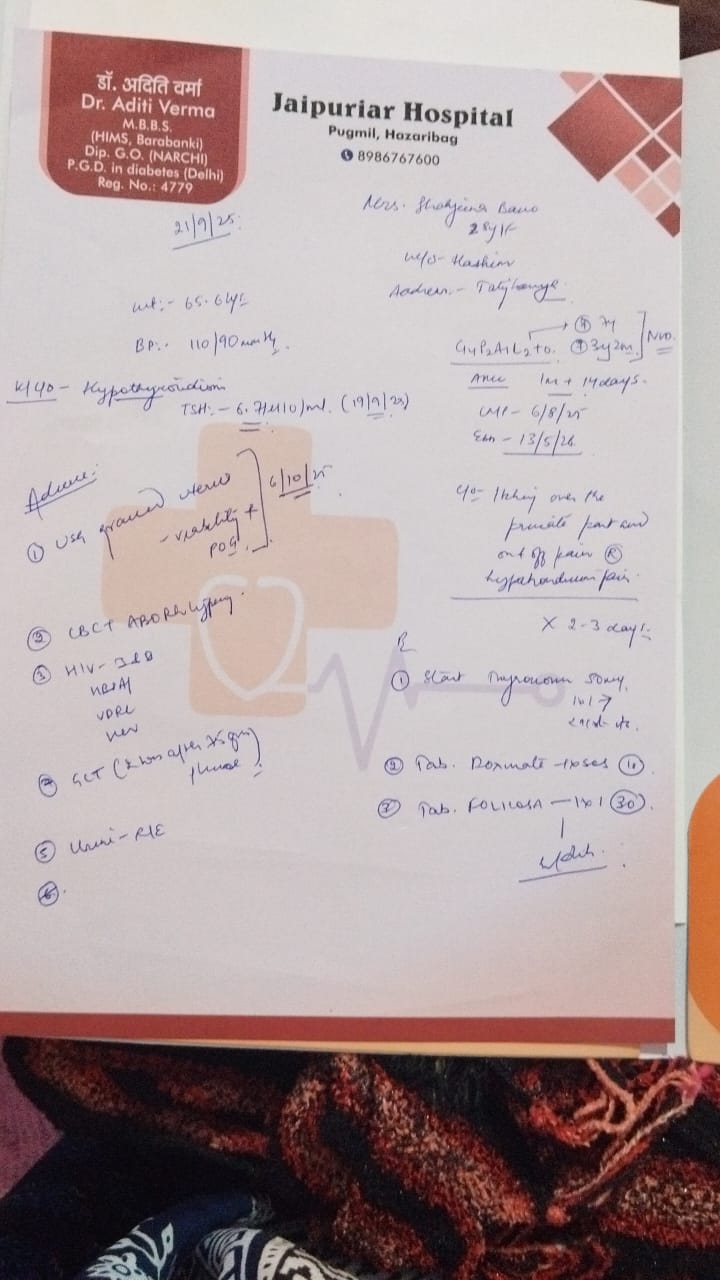 डॉ. अदिति वर्मा
Dr. Aditi Verma
M.B.B.S.
(HIMS, Barabanki)
Dip. G.O. (NARCHI)
P.G.D. in diabetes (Delhi)
Reg. No.: 4779
Jaipuriar Hospital
Pugmil, Hazaribag
8986767600
21/9/25
Mrs. Bano
28y/F
w/o - Hashim
Address:-
wt:- 65.6 kgs
BP:- 110/90 mm Hg.
G4P2A1L2+0. 7y
3y2m. NVD.
1m + 14 days.
LMP - 6/8/25
EDD - 13/5/26
K/c/o - Hypothyroidism
TSH:- 6. (19/9/25)
c/o Itching over the
private part and
on & off pain (R)
hypochondrium pain.
X 2-3 days.
Advice:
① USG gravid uterus
- viability +
POG.
6/10/25
② CBC, ABORh typing.
③ HIV - I & II
HBsAg
VDRL
HCV
④ GCT (2 hrs after 75 gm
)
⑤ Urine - R/E
⑥.
Rx
① Start Thyronorm 50mcg.
1x1 →
② Tab. 10
③ Tab. FOLICOSA - 1x1 30.